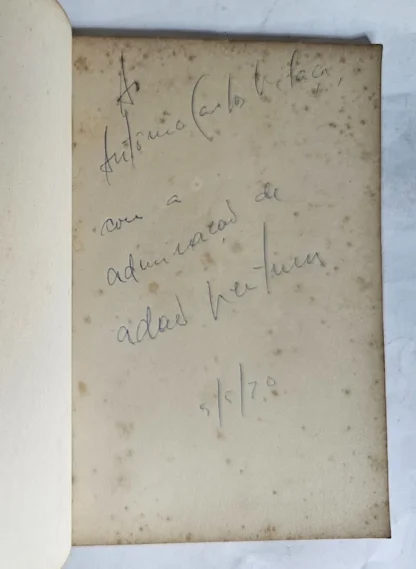 A
Antônio Carlos Villaça,
com a
admiração de
Adão Ventura
5/5/70